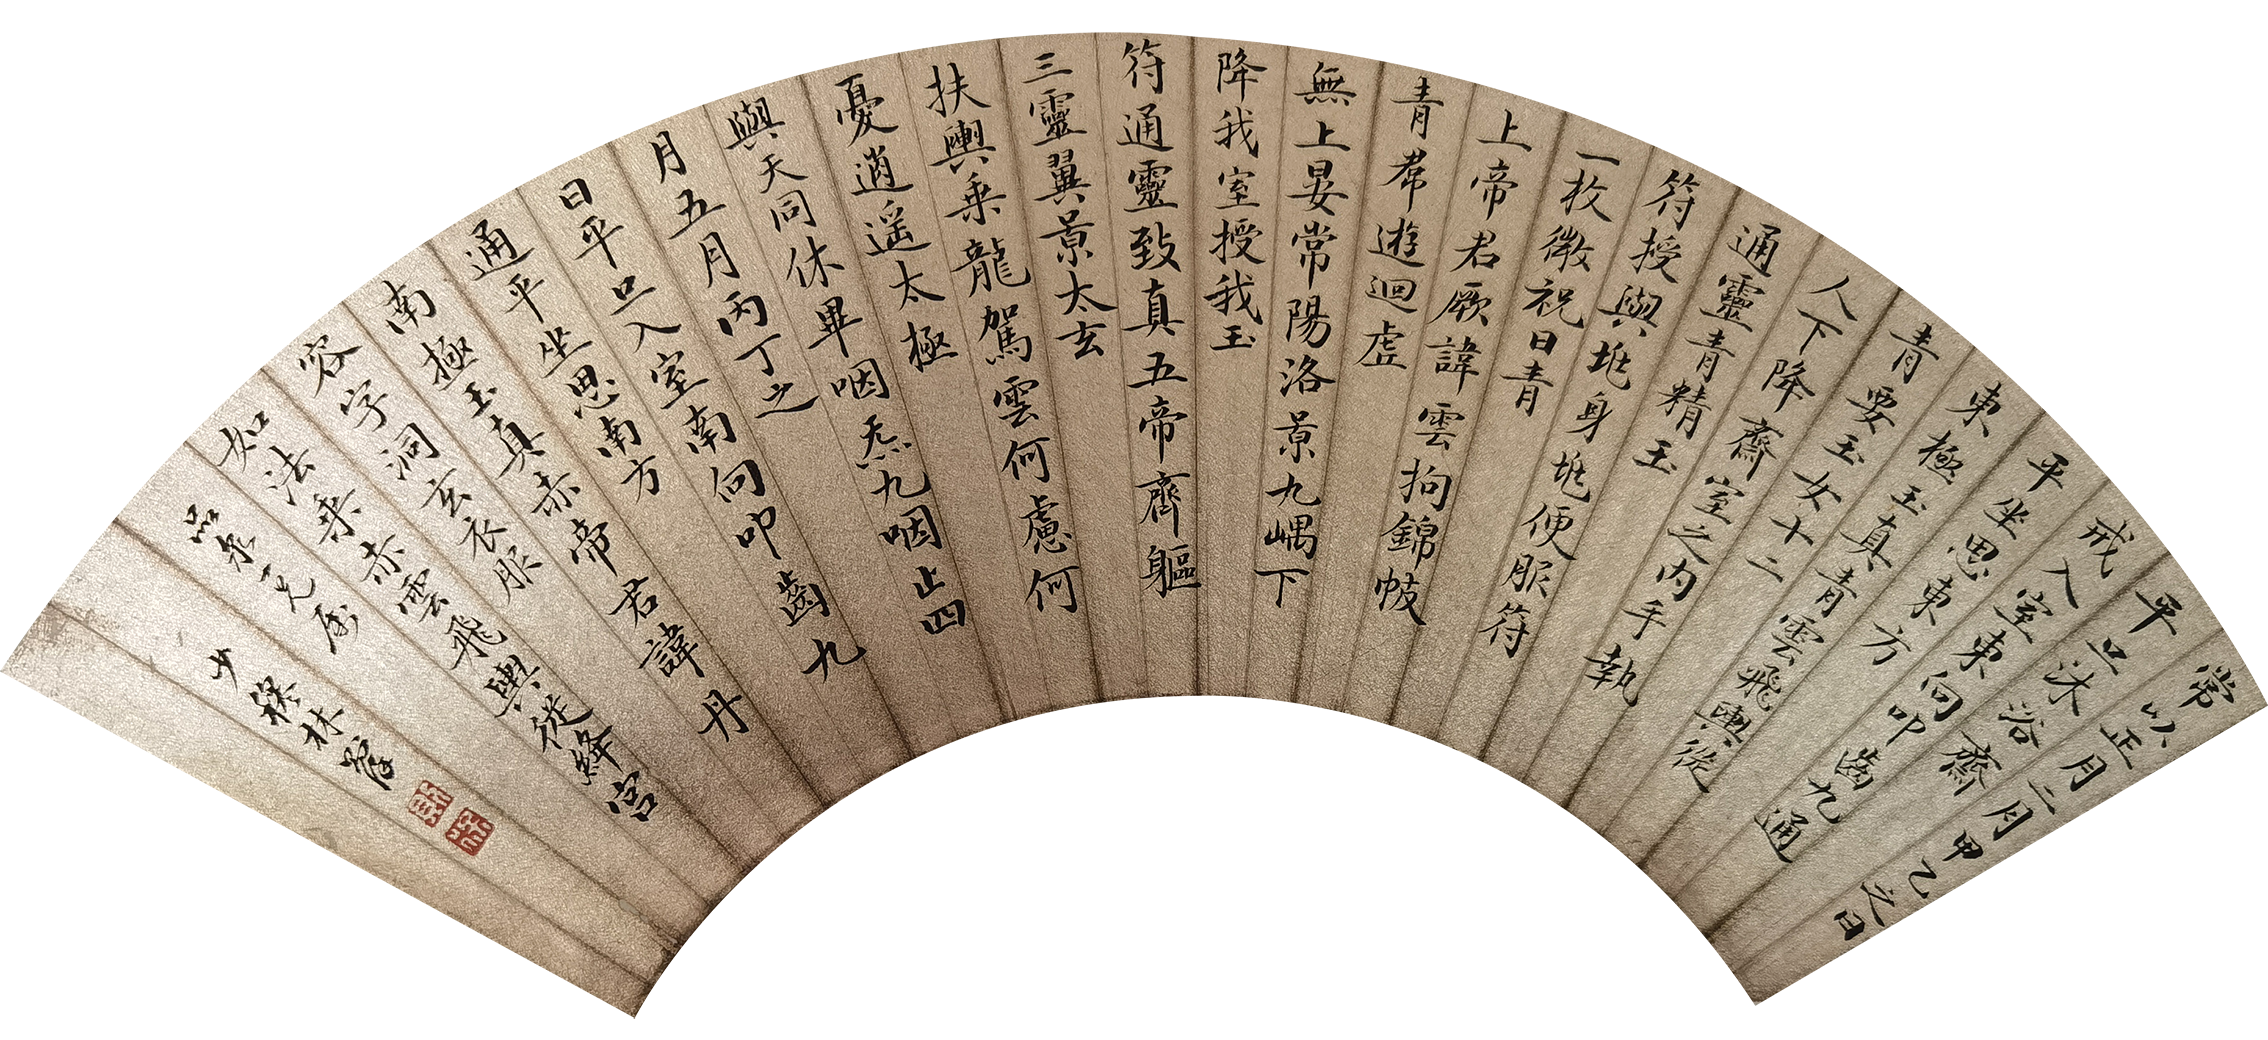 常以正月二月甲乙之日
平旦沐浴齋
戒入室東向叩齒九通
平坐思東方
東極玉真青雲飛輿從
青要玉女十二
人下降齋室之內手執
通靈青精玉
符授與垗身垗便服符
一枚微祝曰青
上帝君厥諱雲拘錦帔
青帬遊迴虛
無上晏常陽洛景九嵎下
降我室授我玉
符通靈致真五帝齊軀
三靈翼景太玄
扶輿乘龍駕雲何慮何
憂逍遥太極
與天同休畢咽炁九咽止四
月五月丙丁之
日平旦入室南向叩齒九
通平坐思南方
南極玉真赤帝君諱丹
容字洞玄衣服
如法乘赤雲飛輿從絳宮
品泉一兄屬
少穆林則徐